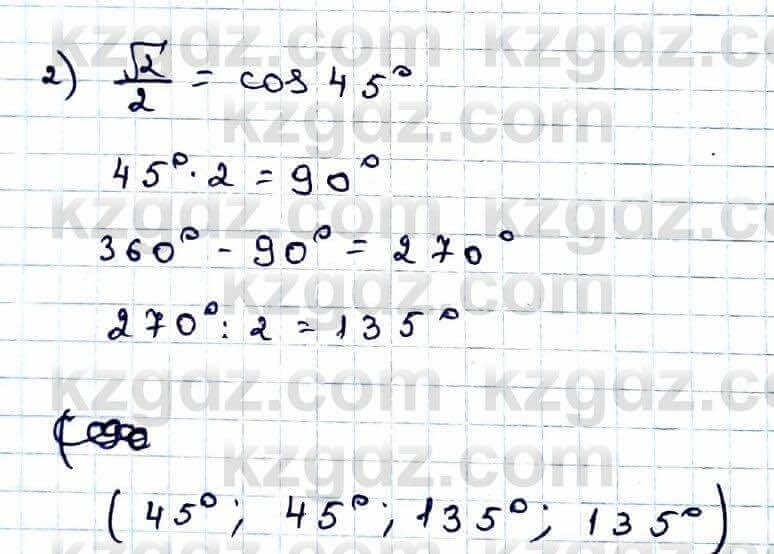 kzgdz.com kzgdz.com
2) √2/2 = cos 45°
kzgdz.com
45° · 2 = 90°
kzgdz.com kzgdz.com
360° - 90° = 270°
kzgdz.com
270° : 2 = 135°
kzgdz.com kzgdz.com
kzgdz.com
(45°; 45°; 135°; 135°)
kzgdz.com kzgdz.com